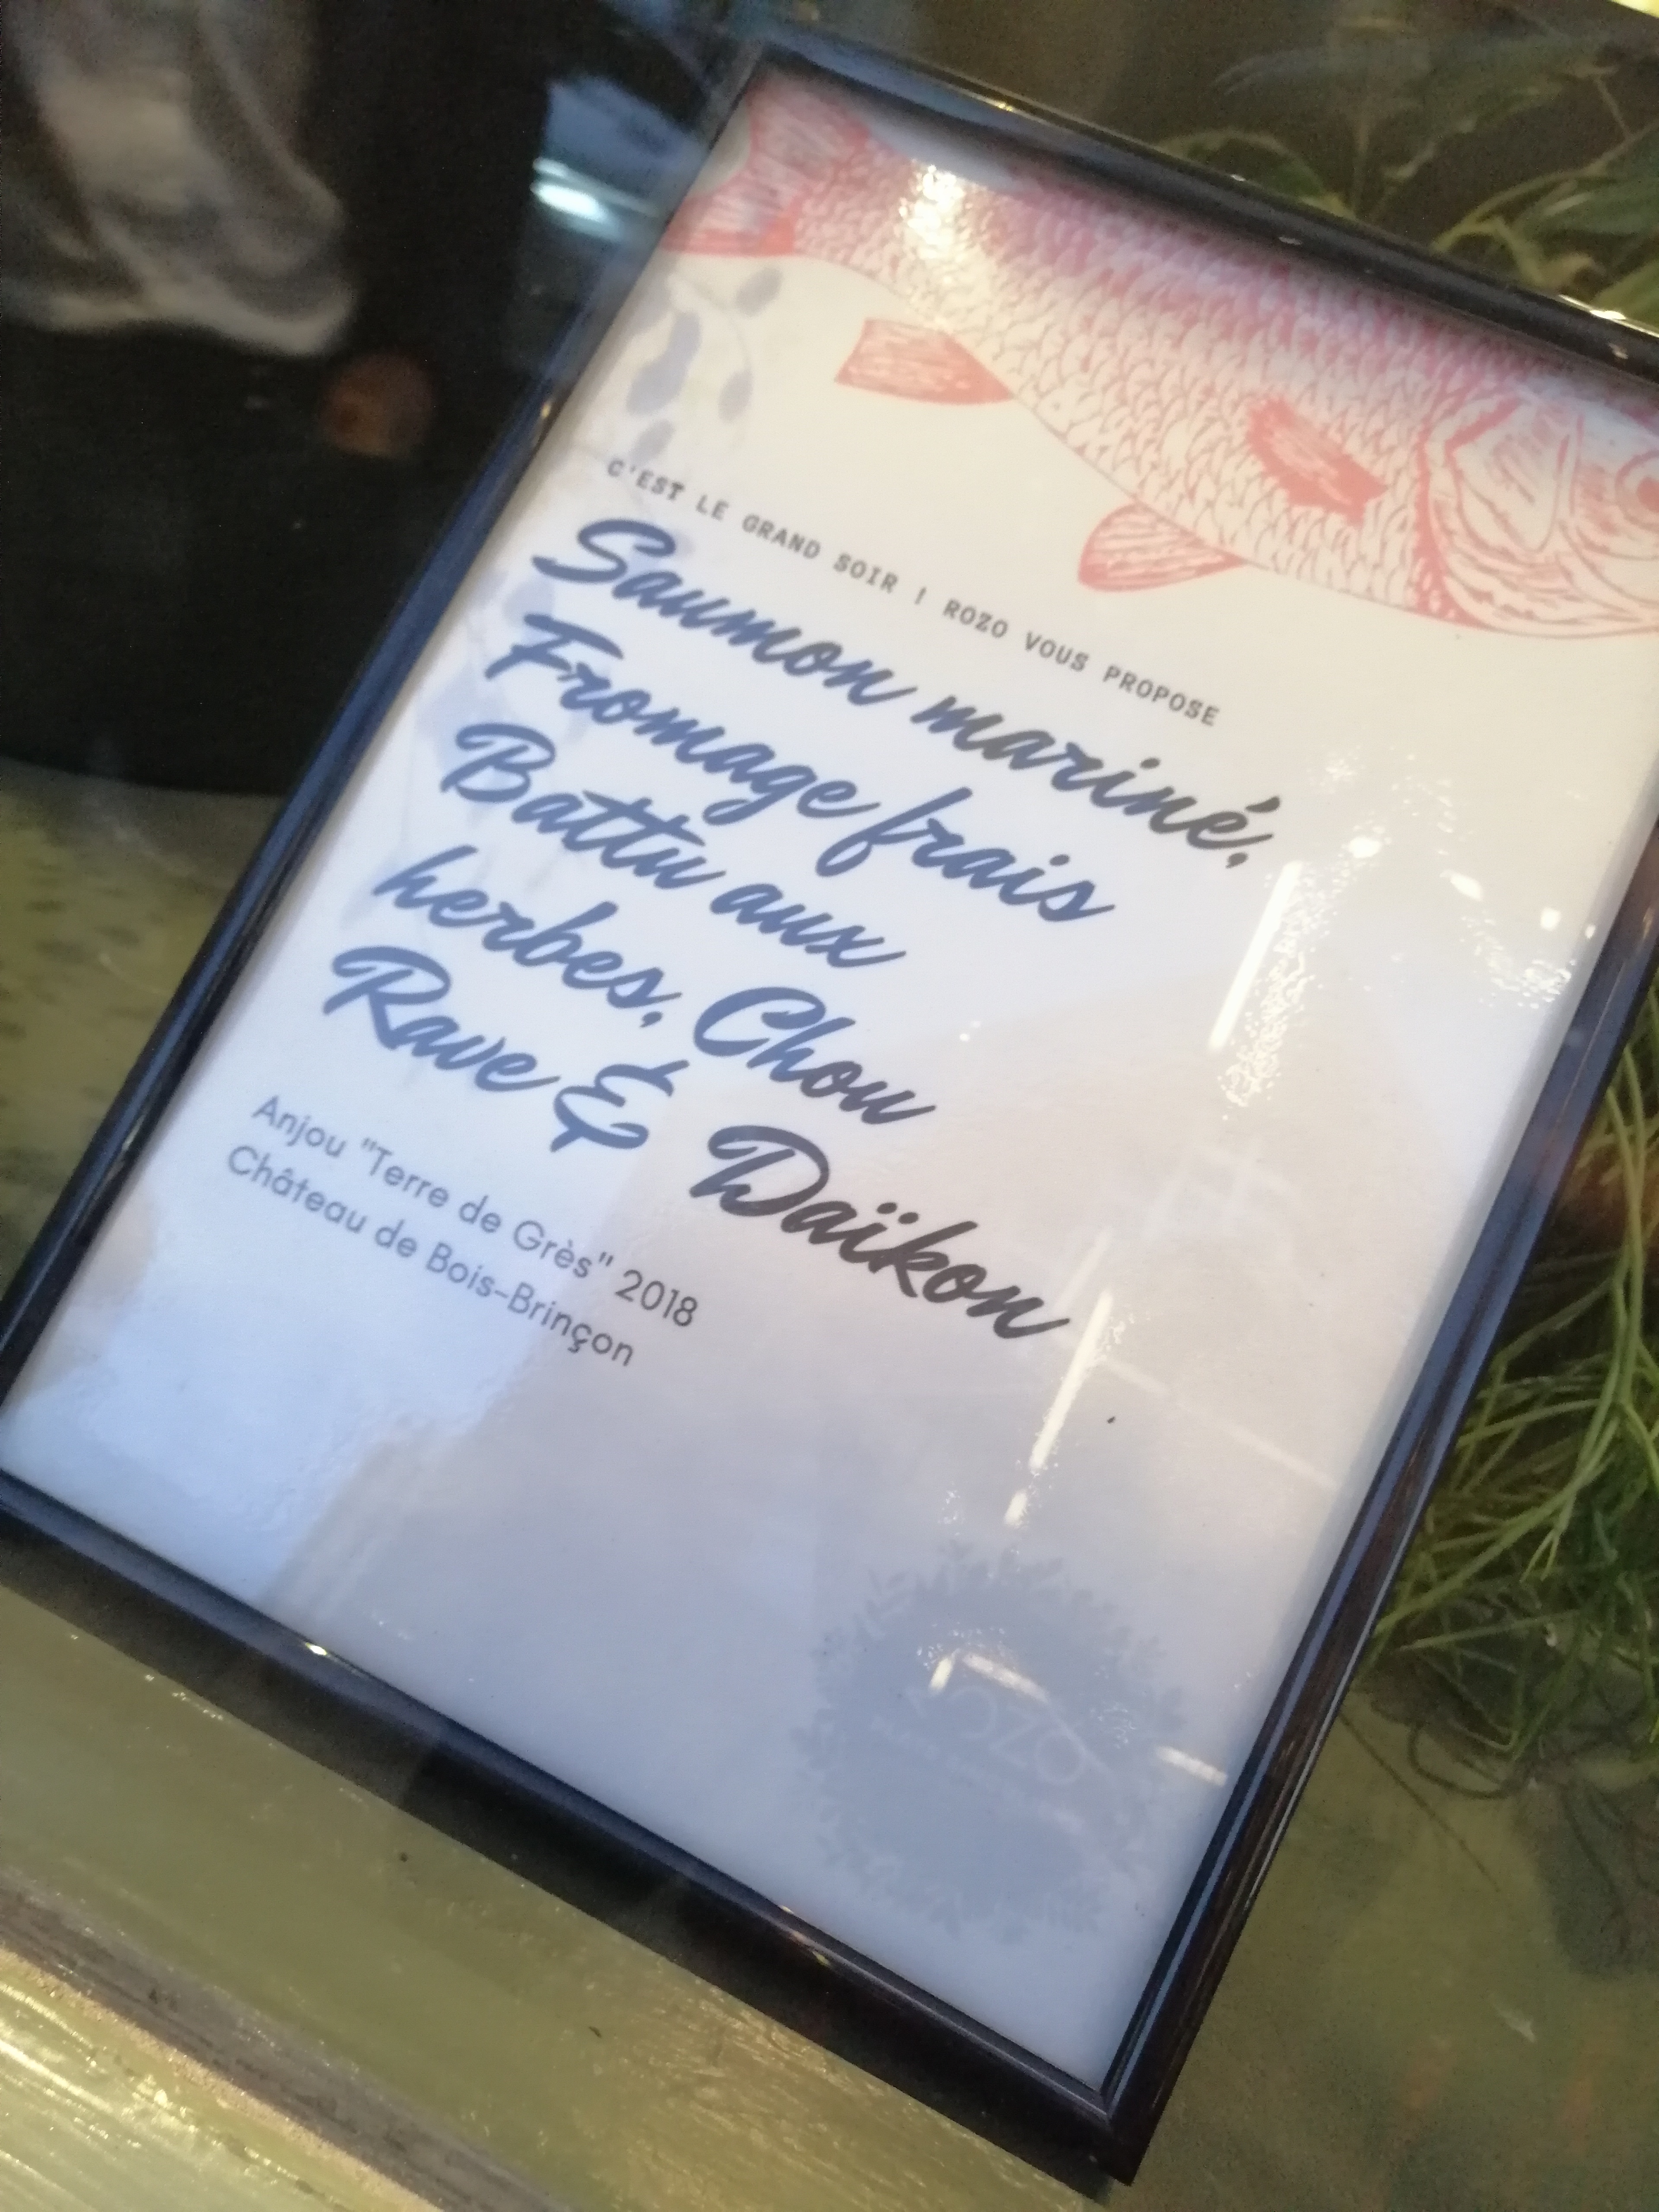 C'EST LE GRAND SOIR ! ROZO VOUS PROPOSE
Saumon mariné,
Fromage frais
Battu aux
herbes, Chou
Rave & Daïkon
Anjou "Terre de Grès" 2018
Château de Bois-Brinçon
ROZO